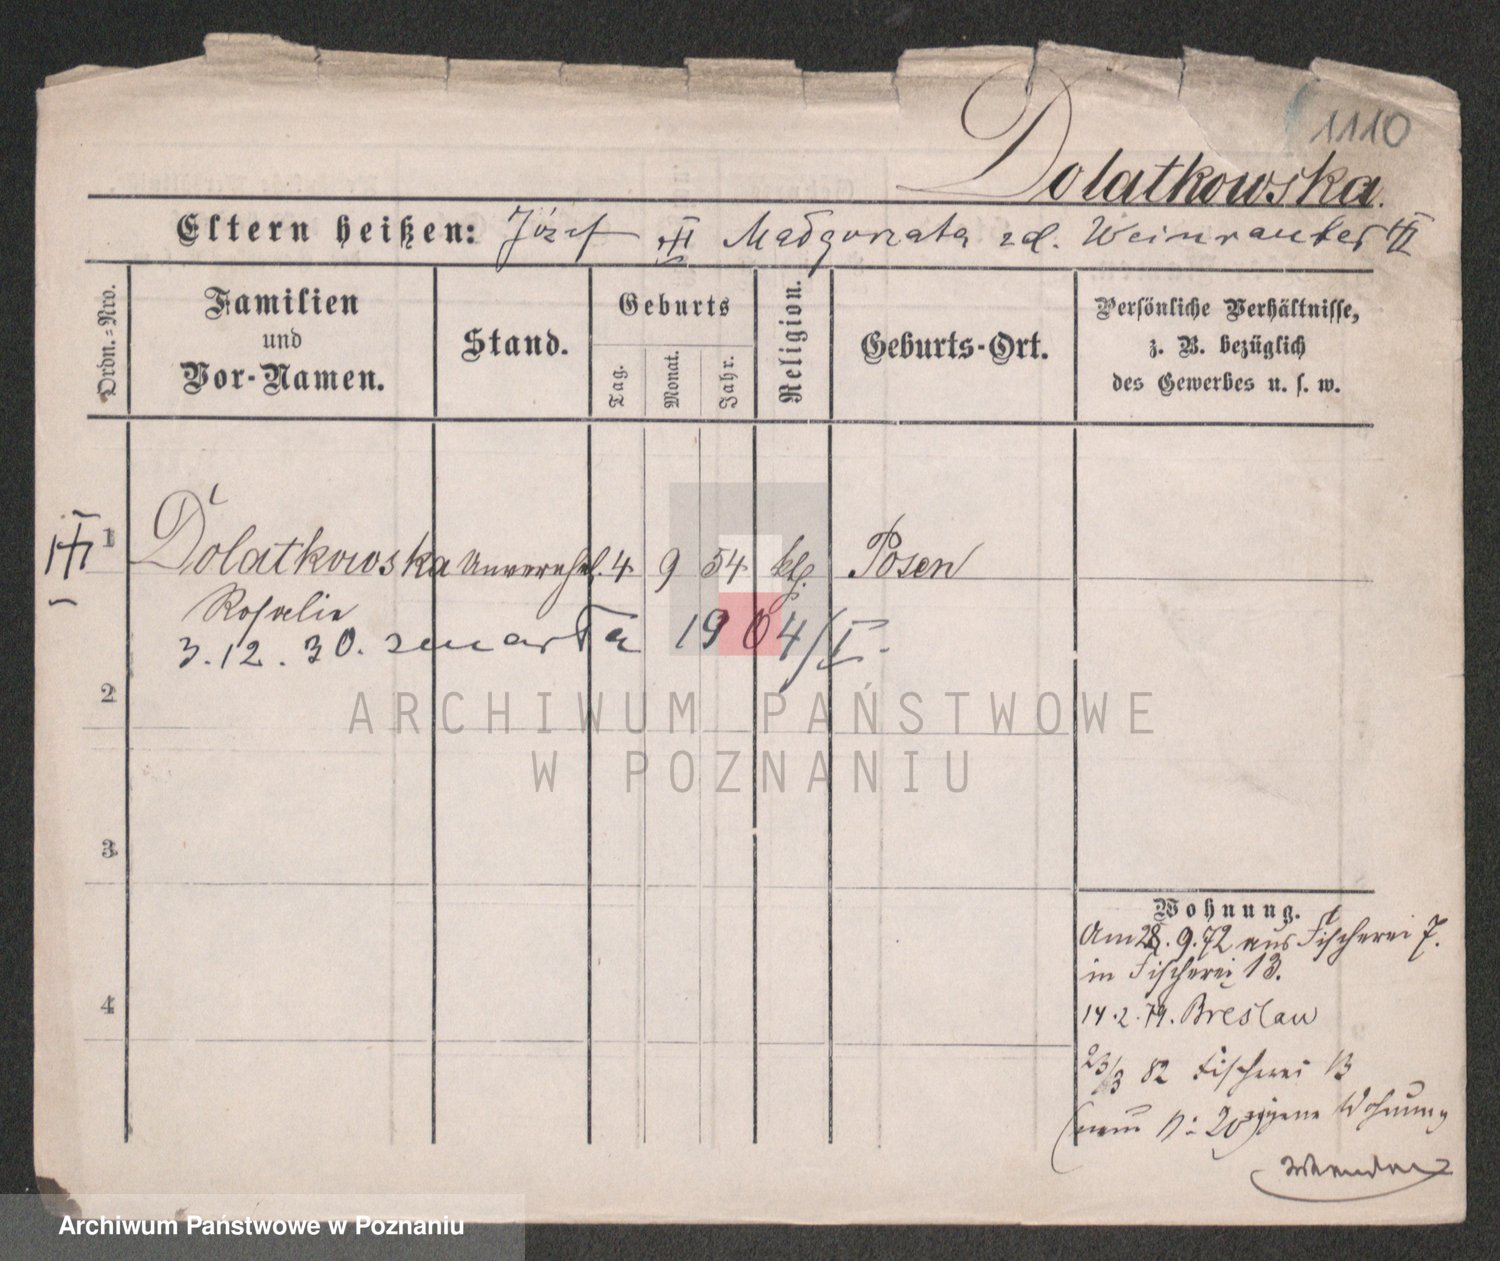 1110
Dolatkowska.
Eltern heißen: Józef Małgorzata zd.
Ordn.-Nro.
Familien
und
Vor-Namen.
Stand.
Geburts
Tag.
Monat.
Jahr.
Religion.
Geburts-Ort.
Persönliche Verhältnisse,
z. B. bezüglich
des Gewerbes u. s. w.
1
Dolatkowska Unverehel. 4 9 54 kth. Posen
Rosalie
3.12.30. zmarła 1904/I.
2
3
4
ARCHIWUM PAŃSTWOWE
W POZNANIU
Wohnung.
Am 28.9.72 aus Fischerei 7.
in Fischerei 13.
14.2.79. Breslau
23/3 82 Fischerei 13
eigene Wohnung
Archiwum Państwowe w Poznaniu